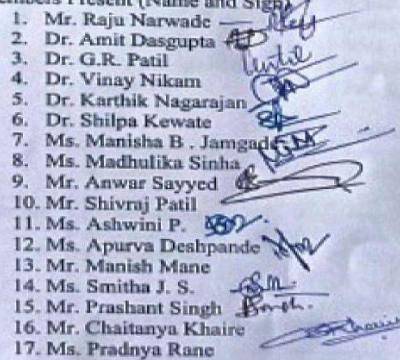 Members Present (Name and Sign)
1. Mr. Raju Narwade
2. Dr. Amit Dasgupta
3. Dr. G.R. Patil
4. Dr. Vinay Nikam
5. Dr. Karthik Nagarajan
6. Dr. Shilpa Kewate
7. Ms. Manisha B . Jamgade
8. Ms. Madhulika Sinha
9. Mr. Anwar Sayyed
10. Mr. Shivraj Patil
11. Ms. Ashwini P.
12. Ms. Apurva Deshpande
13. Mr. Manish Mane
14. Ms. Smitha J. S.
15. Mr. Prashant Singh
16. Mr. Chaitanya Khaire
17. Ms. Pradnya Rane